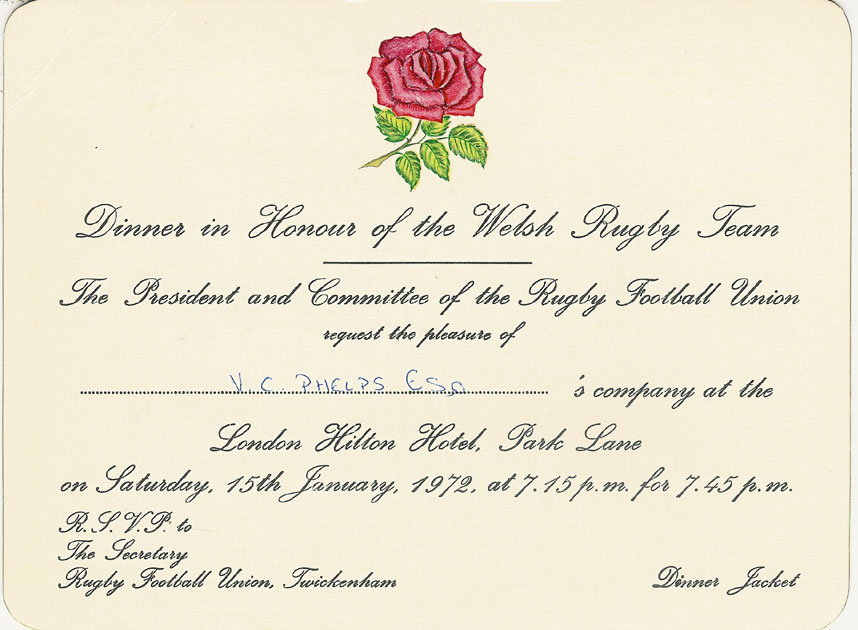 Dinner in Honour of the Welsh Rugby Team
The President and Committee of the Rugby Football Union
request the pleasure of
V. C. PHELPS ESQ 's company at the
London Hilton Hotel, Park Lane
on Saturday, 15th January, 1972, at 7.15 p.m. for 7.45 p.m.
R.S.V.P. to
The Secretary
Rugby Football Union, Twickenham
Dinner Jacket